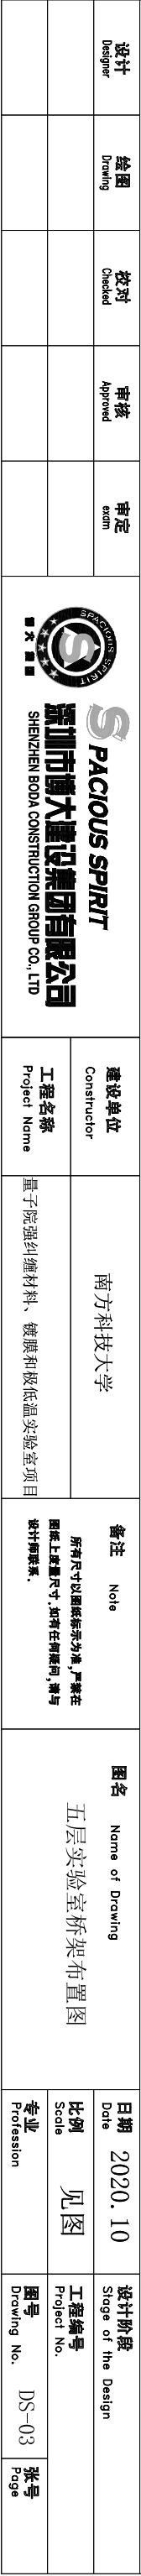 设计
Designer
绘图
Drawing
校对
Checked
审核
Approved
审定
exam
SPACIOUS SPIRIT
博大建设
S PACIOUS SPIRIT
深圳市博大建设集团有限公司
SHENZHEN BODA CONSTRUCTION GROUP CO., LTD
建设单位
Constructor
南方科技大学
工程名称
Project Name
量子院强纠缠材料、镀膜和极低温实验室项目
备注 Note
所有尺寸以图纸标示为准,严禁在
图纸上度量尺寸.如有任何疑问,请与
设计师联系.
图名 Name of Drawing
五层实验室桥架布置图
日期 2020.10
Date
设计阶段
Stage of the Design
比例 见图
Scale
工程编号
Project No.
专业
Profession
图号 DS-03
Drawing No.
张号
Page